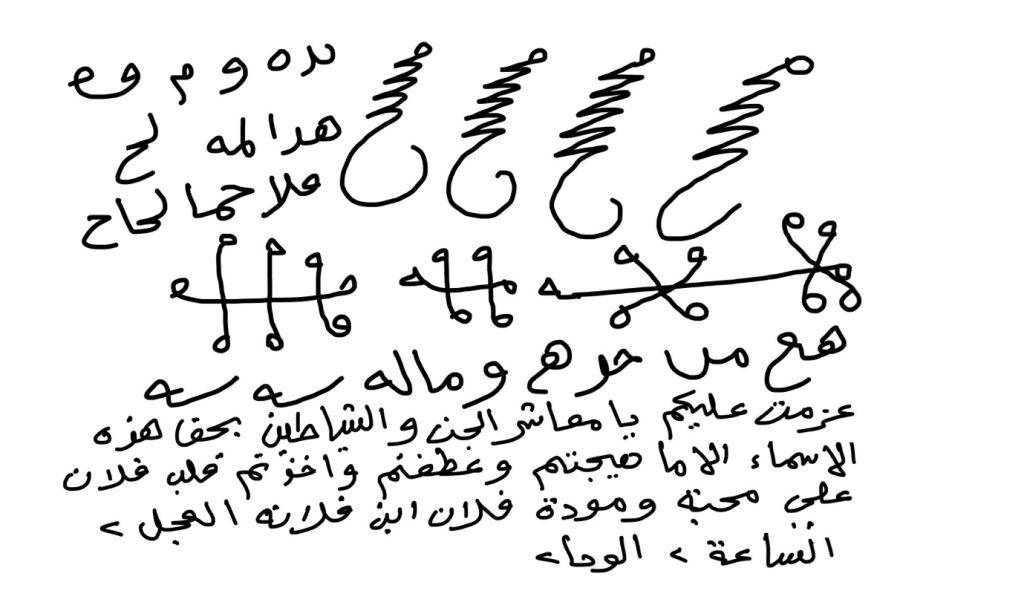 ىده و م و ه
هدا لمه لح
فلا حما لحاح
هع مں حوه وماله سه سه
عزمت عليكم يا معاشر الجن والشاطين بحق هذه
الاسماء الاما هيجتم وعطفتم واخذتم قلب فلان
على محبة ومودة فلان ابن فلانه العجل ٢
الساعة ٢ الوحا ٢